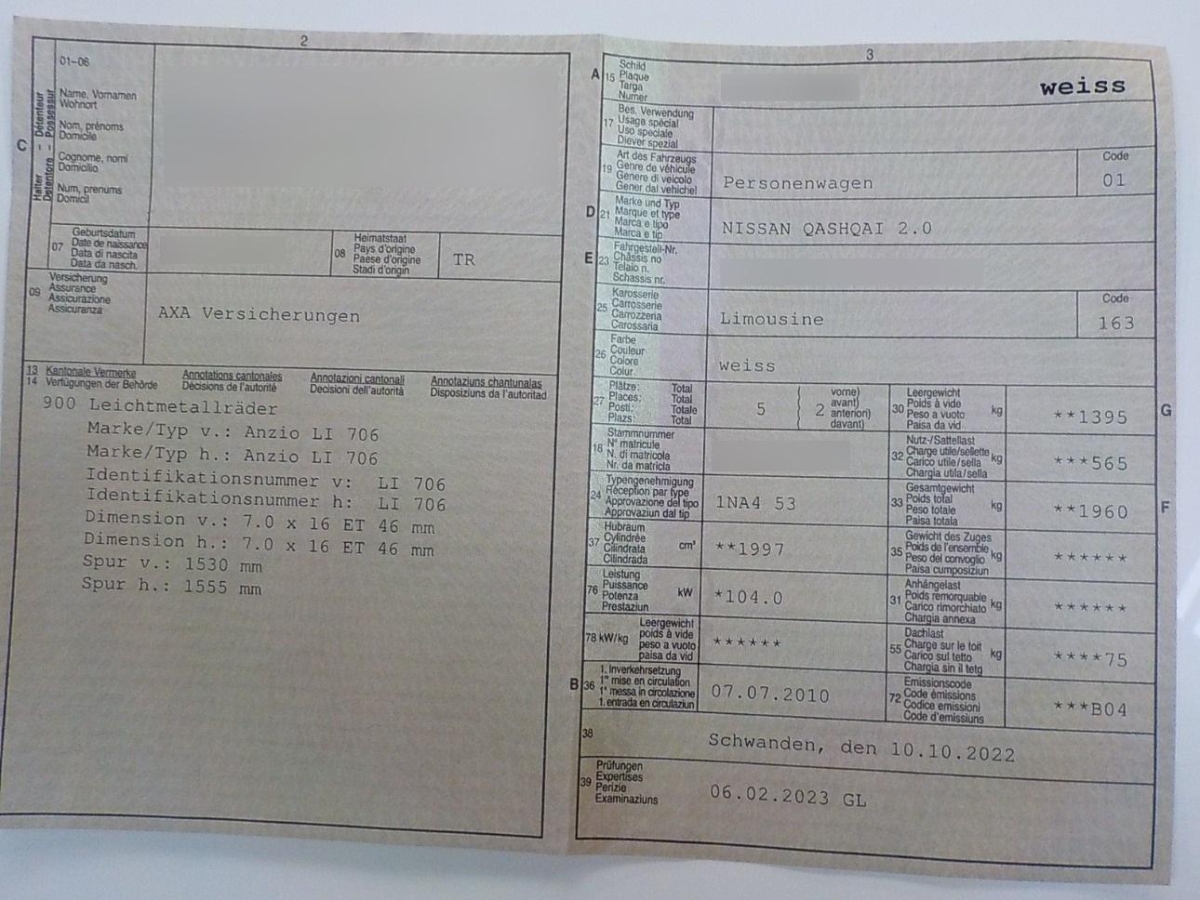 2
01-06
Name, Vornamen
Wohnort
Nom, prénoms
Domicile
Cognome, nomi
Domicilio
Num, prenums
Domicil
C
Halter – Détenteur
Detentore – Possessur
07
Geburtsdatum
Date de naissance
Data di nascita
Data da nasch.
08
Heimatstaat
Pays d'origine
Paese d'origine
Stadi d'origin
TR
09
Versicherung
Assurance
Assicurazione
Assicuranza
AXA Versicherungen
13 Kantonale Vermerke Annotations cantonales Annotazioni cantonali Annotaziuns chantunalas
14 Verfügungen der Behörde Décisions de l'autorité Decisioni dell'autorità Disposiziuns da l'autoritad
900 Leichtmetallräder
Marke/Typ v.: Anzio LI 706
Marke/Typ h.: Anzio LI 706
Identifikationsnummer v: LI 706
Identifikationsnummer h: LI 706
Dimension v.: 7.0 x 16 ET 46 mm
Dimension h.: 7.0 x 16 ET 46 mm
Spur v.: 1530 mm
Spur h.: 1555 mm
3
A 15
Schild
Plaque
Targa
Numer
weiss
17
Bes. Verwendung
Usage spécial
Uso speciale
Diever spezial
19
Art des Fahrzeugs
Genre de véhicule
Genere di veicolo
Gener dal vehichel
Personenwagen
Code
01
D 21
Marke und Typ
Marque et type
Marca e tipo
Marca e tip
NISSAN QASHQAI 2.0
E 23
Fahrgestell-Nr.
Châssis no
Telaio n.
Schassis nr.
25
Karosserie
Carrosserie
Carrozzeria
Carossaria
Limousine
Code
163
26
Farbe
Couleur
Colore
Colur
weiss
27
Plätze: Total
Places: Total
Posti: Totale
Plazs: Total
5
2
vorne)
avant)
anteriori)
davant)
30
Leergewicht
Poids à vide
Peso a vuoto
Paisa da vid
kg
**1395
G
18
Stammnummer
N° matricule
N. di matricola
Nr. da matricla
32
Nutz-/Sattellast
Charge utile/sellette
Carico utile/sella
Chargia utila/sella
kg
***565
24
Typengenehmigung
Réception par type
Approvazione del tipo
Approvaziun dal tip
1NA4 53
33
Gesamtgewicht
Poids total
Peso totale
Paisa totala
kg
**1960
F
37
Hubraum
Cylindrée
Cilindrata
Cilindrada
cm³
**1997
35
Gewicht des Zuges
Poids de l'ensemble
Peso del convoglio
Paisa cumposiziun
kg
******
76
Leistung
Puissance
Potenza
Prestaziun
kW
*104.0
31
Anhängelast
Poids remorquable
Carico rimorchiato
Chargia annexa
kg
******
78 kW/kg
Leergewicht
poids à vide
peso a vuoto
paisa da vid
******
55
Dachlast
Charge sur le toit
Carico sul tetto
Chargia sin il tetg
kg
****75
B 36
1. Inverkehrsetzung
1re mise en circulation
1a messa in circolazione
1. entrada en circulaziun
07.07.2010
72
Emissionscode
Code émissions
Codice emissioni
Code d'emissiuns
***B04
38
Schwanden, den 10.10.2022
39
Prüfungen
Expertises
Perizie
Examinaziuns
06.02.2023 GL